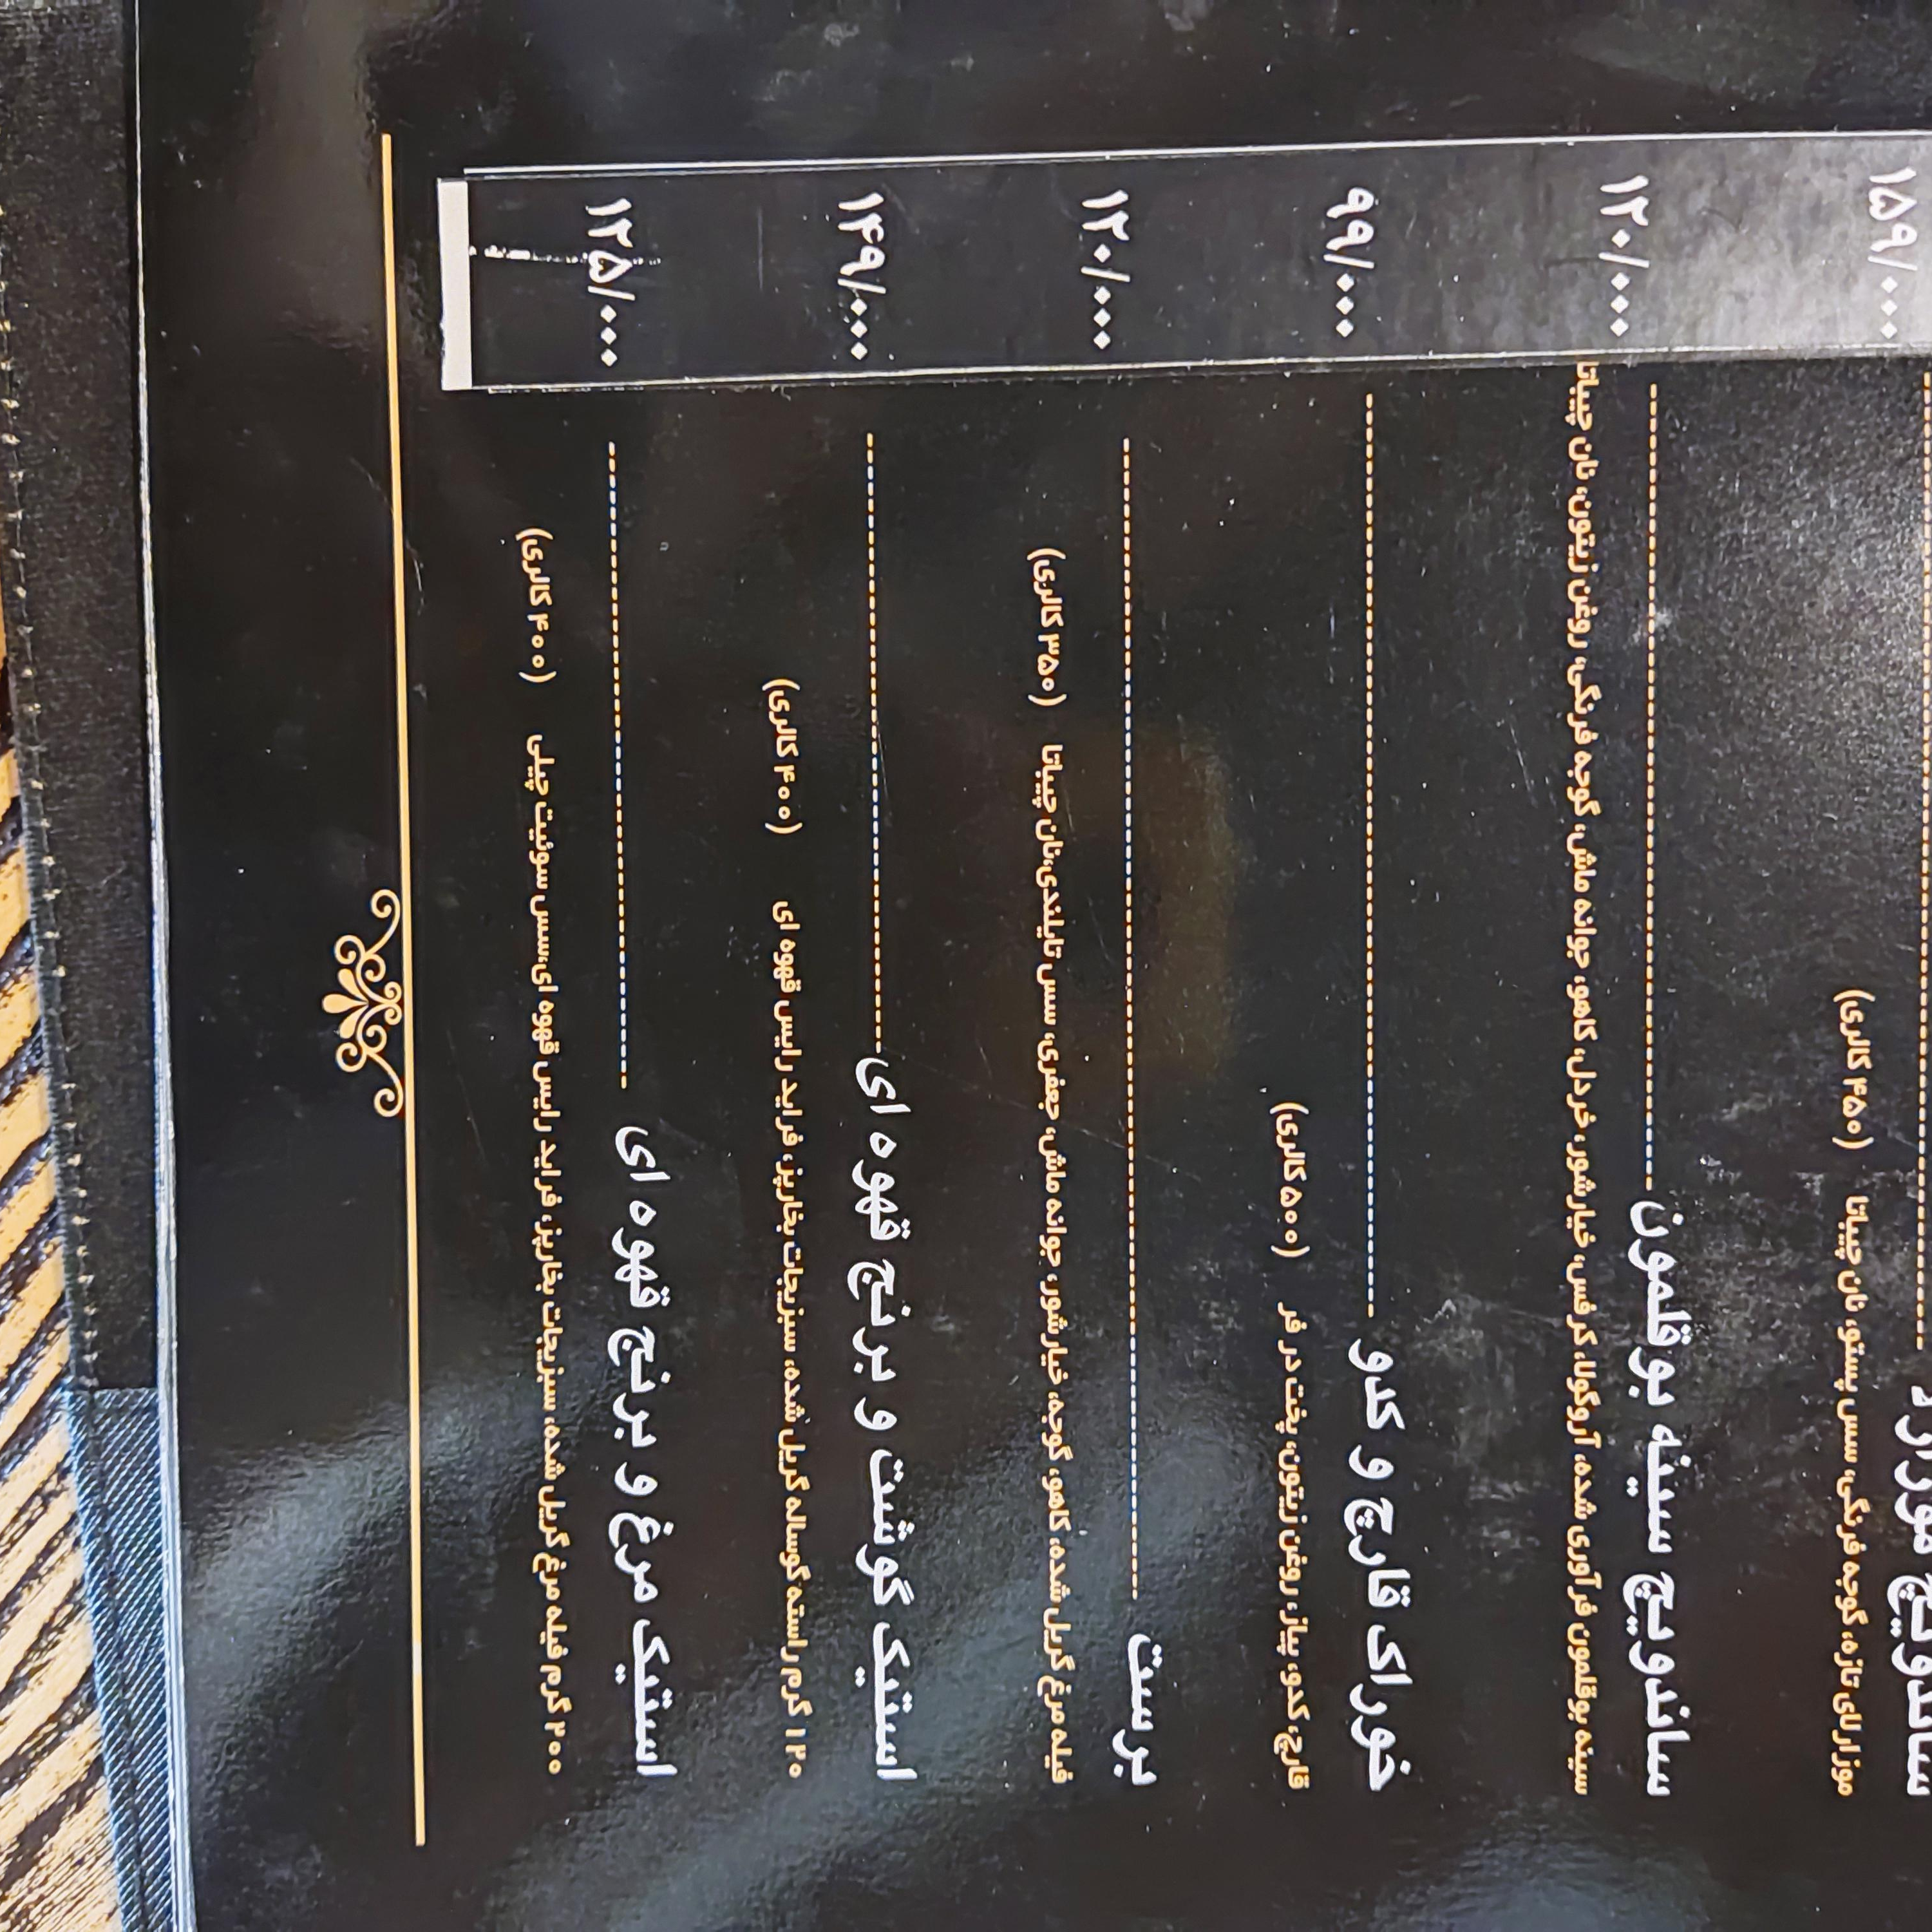 ۱۵۹/۰۰۰
موزارلای تازه، گوجه فرنگی، سس پستو، نان چیباتا (۴۵۰ کالری)
ساندویچ سینه بوقلمون ۱۲۰/۰۰۰
سینه بوقلمون فرآوری شده، آروگولا، کرفس، خیارشور، خردل، کاهو، جوانه ماش، گوجه فرنگی، روغن زیتون، نان چیباتا
خوراک قارچ و کدو ۹۹/۰۰۰
قارچ، کدو، پیاز، روغن زیتون، پخت در فر (۵۰۰ کالری)
برست ۱۲۰/۰۰۰
فیله مرغ گریل شده، کاهو، گوجه، خیارشور، جوانه ماش، جعفری، سس تایلندی،نان چیباتا (۳۵۰ کالری)
استیک گوشت و برنج قهوه ای ۱۴۹/۰۰۰
۱۲۰ گرم راسته گوساله گریل شده، سبزیجات بخارپز، فراید رایس قهوه ای (۴۰۰ کالری)
استیک مرغ و برنج قهوه ای ۱۲۵/۰۰۰
۲۰۰ گرم فیله مرغ گریل شده، سبزیجات بخارپز، فراید رایس قهوه ای،سس سوئیت چیلی (۴۰۰ کالری)